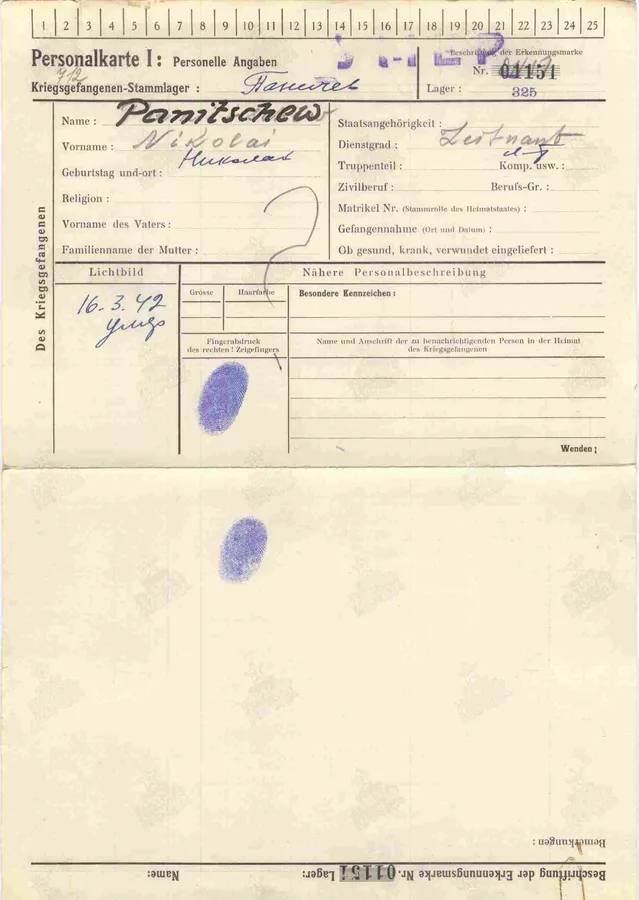 1 2 3 4 5 6 7 8 9 10 11 12 13 14 15 16 17 18 19 20 21 22 23 24 25
Personalkarte I: Personelle Angaben
7/2
Kriegsgefangenen-Stammlager :
Beschriftung der Erkennungsmarke
Nr. 01151
Lager : 325
Des Kriegsgefangenen
Name : Panitschew
Vorname : Nikolai
Николай
Geburtstag und-ort :
Religion :
Vorname des Vaters :
Familienname der Mutter :
Staatsangehörigkeit :
Dienstgrad : Leitnant
Truppenteil : Komp. usw. :
Zivilberuf : Berufs-Gr. :
Matrikel Nr. (Stammrolle des Heimatstaates) :
Gefangennahme (Ort und Datum) :
Ob gesund, krank, verwundet eingeliefert :
Lichtbild
16.3.42
умер
Nähere Personalbeschreibung
Grösse
Haarfarbe
Besondere Kennzeichen :
Fingerabdruck
des rechten! Zeigefingers
Name und Anschrift der zu benachrichtigenden Person in der Heimat
des Kriegsgefangenen
Wenden ;
Bemerkungen :
Beschriftung der Erkennungsmarke Nr. 01151 Lager: Name: